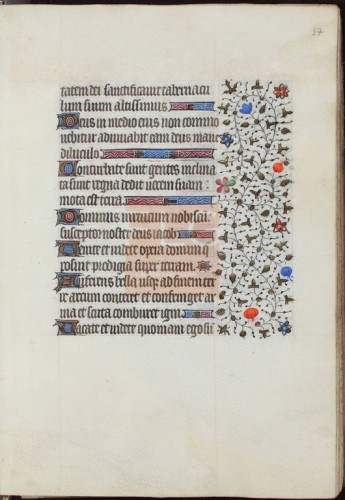 57
tatem dei sanctificavit tabernacu
lum suum altissimus
Deus in medio eius non commo
vebitur adiuvabit eam deus mane
diluculo
Conturbate sunt gentes inclina
ta sunt regna dedit vocem suam
mota est terra
Dominus virtutum nobiscum
susceptor noster deus iacob
Venite et videte opera domini q
posuit prodigia super terram
Auferens bella usque ad finem ter
re arcum conteret et confringet ar
ma et scuta comburet igni
Vacate et videte quoniam ego sum